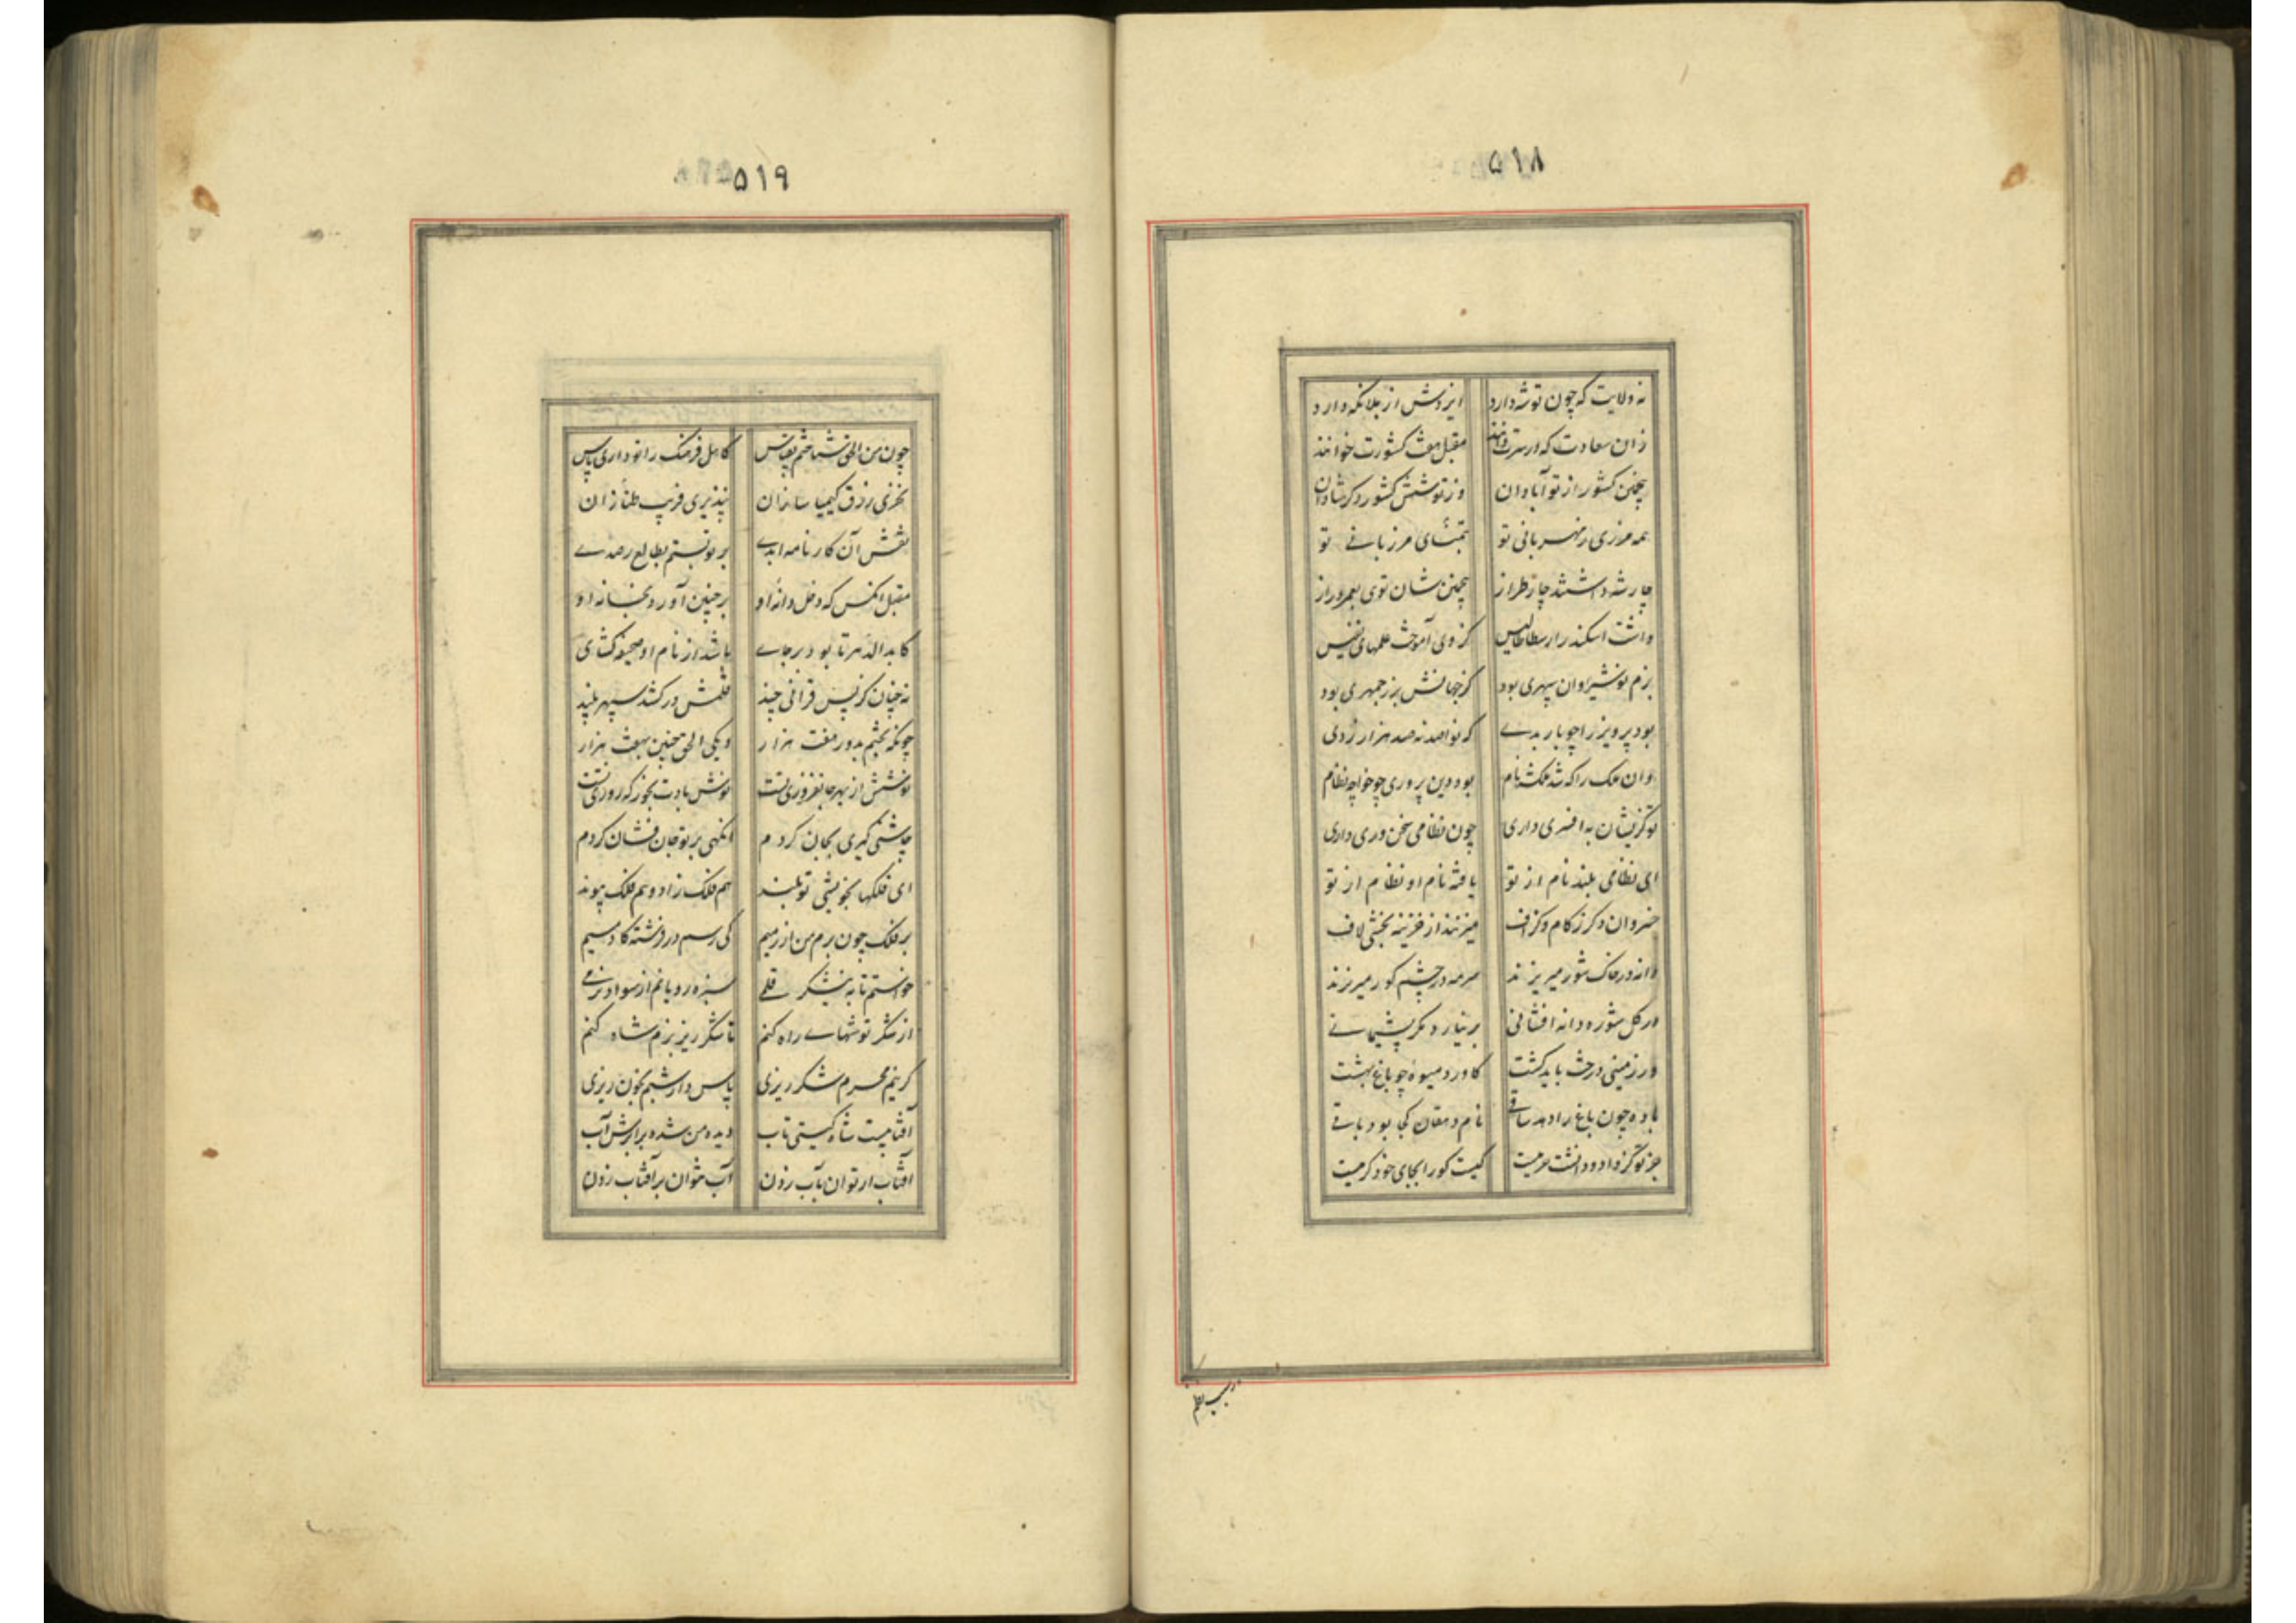 ۵۱۸
نه ولایت که چون تو شه دارد ایزدش از بلا نگه دارد
زان سعادت که در سرت دانند مقبل هفت کشورت خوانند
پنجمین کشور از تو آبادان وز تو شش کشور دگر شادان
همه مرزی ز مهربانی تو بتمنای مرزبانی تو
چار شه داشتند چار طراز پنجمین شان توی بعمر دراز
داشت اسکندر ارسطاطالیس کز وی آموخت علمهای نفیس
بزم نوشیروان سپهری بود کز جهانش بزرجمهری بود
بود پرویز را چو باربدی که نوا صد نه صد هزار زدی
وان ملک را که شد ملکشه نام بود دین پروری چو خواجه نظام
تو کزیشان به افسری داری چون نظامی سخن وری داری
ای نظامی بلند نام از تو یافته نام او نظام از تو
خسروان دگر ز کام و گزاف میزنند از خزینه بخشی لاف
دانه در خاک شور میریزند سرمه در چشم کور میریزند
در گل شوره دانه افشانی بر نیارد مگر پشیمانی
در زمینی درخت باید کشت کاورد میوهٔ چو باغ بهشت
باده چون باغ را دهد ساقی نام دهقان کجا بود باقی
جز تو کز داد و دانشت حرمیست کیست کو را بجای خود کرمیست
۵۱۹
چون من الحق شناختم بقیاس کاهل فرهنگ را تو داری پاس
نخری زرق کیمیا سازان نپذیری فریب طنازان
نقش آن کارنامه ابدی بر تو بستم بطالع رصدی
مقبل آنکس که دخل دانه او بر چنین آورد بخانه او
کابد الدهر تا بود بر جای باشد از نام او صحیفه گشای
نه چنان کز پس قرانی چند قلمش در کشد سپهر بلند
چونکه پختم بدور هفت هزار دیگی الحق چنین بهفت بزار
نوشش از بهر جانفروزی تست نوش بادت بخور که روزی تست
چاشنی گیری بجان کردم انگهی بر تو جان فشان کردم
ای فلکها بخویشی تو بلند هم فلک زاد و هم فلک پیوند
بر فلک چون برم من از زمیم کی رسم در فرشته کادمیم
خواستم تا به نیشکر قلمی سبزه رویانم از سواد زمی
از شکر توشهای راه کنم تا شکر ریز بزم شاه کنم
گر نیم محرم شکر ریزی پاس دار شبم بخون ریزی
آفتابیست شاه گیتی تاب دیده من شده برابرش آب
آفتاب ار توان بآب زدن آب نتوان بر آفتاب زدن